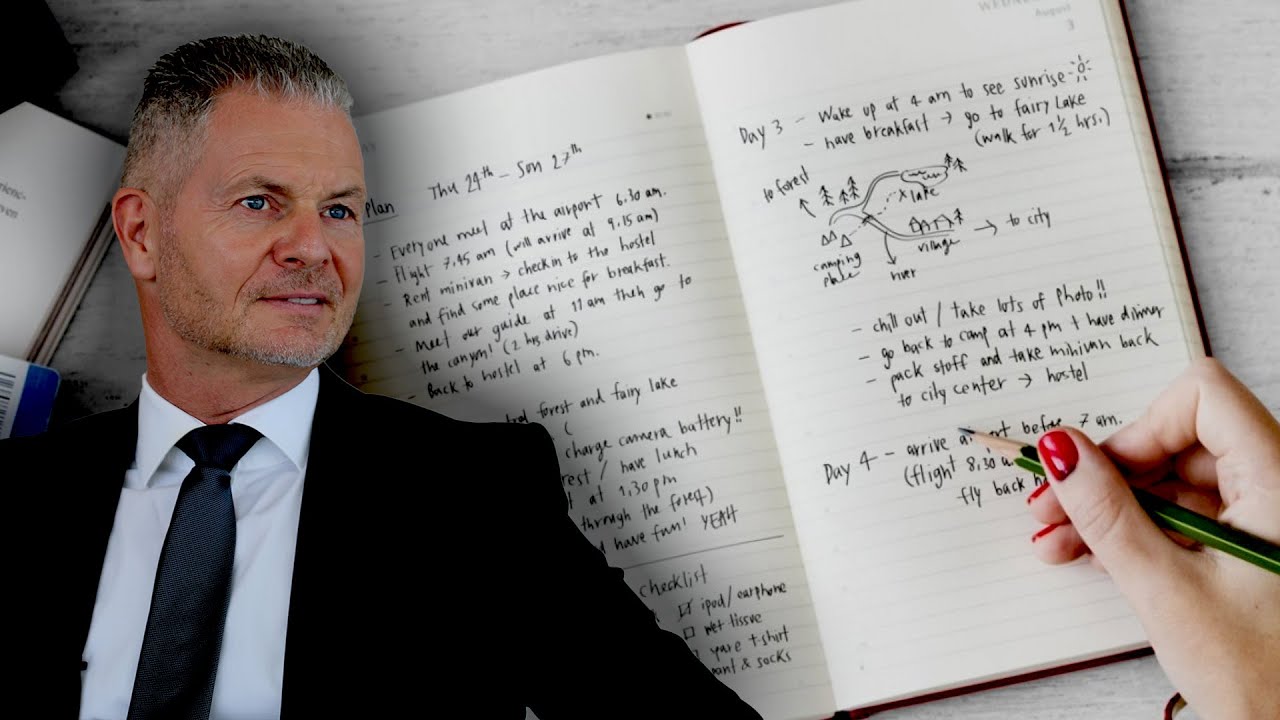 Thu 24th - Sun 27th
plan
- Everyone meet at the airport 6.30 am.
- Flight 7.45 am (will arrive at 9.15 am)
- Rent minivan → check in to the hostel
and find some place nice for breakfast.
- Meet our guide at 11 am then go to
the canyon! (2 hrs drive)
- Back to hostel at 6 pm.
forest and fairy lake
(
charge camera battery!!
/ have lunch
at 1.30 pm
through the forest)
have fun! YEAH
checklist
ipod/earphone
wet tissue
t-shirt
& socks
August
3
Day 3 - Wake up at 4 am to see sunrise
- have breakfast → go to fairy Lake
(walk for 1 1/2 hrs.)
to forest
x lake
camping
place
village
→ to city
river
- chill out / take lots of photo!!
- go back to camp at 4 pm + have dinner
- pack stoff and take minivan back
to city center → hostel
Day 4 - arrive before 7 am.
(flight 8.30
fly back